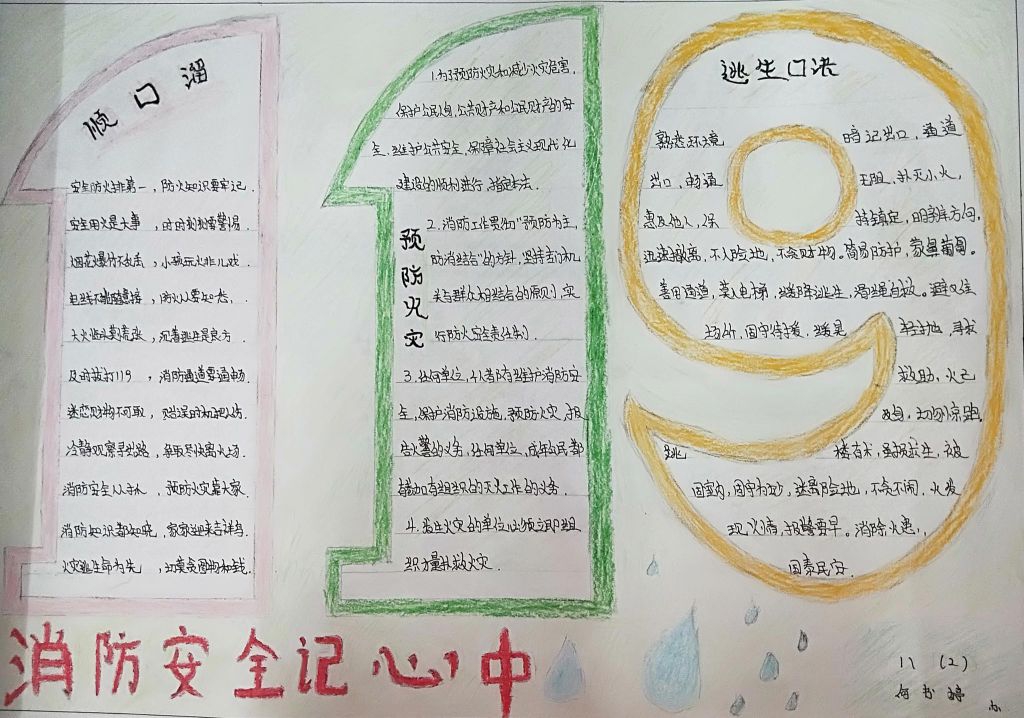 顺口溜
安全防火非第一，防火知识要牢记．
安全用火是大事，时时刻刻需警惕．
烟花爆竹不乱丢，小孩玩火非儿戏．
电线不，防火从要知危，
大火临头莫慌张，沉着逃生是良方．
及时拨打119，消防通道要通畅．
迷恋财物不可取，贻误时机把人伤．
冷静观察寻出路，争取尽快离火场．
消防安全从手，预防火灾靠大家．
消防知识都知晓，家家迎来吉祥鸟．
火灾逃生命为先，切莫贪图物和钱．
预防火灾
1.为了预防火灾和减少火灾危害，
保护公民人身，公共财产和公民财产的安
全，维护公共安全，保障社会主义现代化
建设的顺利进行，指定本法．
2．消防工作贯彻“预防为主，
防消结合”的方针，坚持专门机
关与群众相结合的原则，实
行防火安全责任制．
3．任何单位，个人都有维护消防安
全，保护消防设施，预防火灾，报
告火警的义务，任何单位，成年公民都
有参加有组织的灭火工作的义务．
4．发生火灾的单位必须立即组
织力量扑救火灾．
逃生口诀
熟悉环境 暗记出口，通道
出口，畅通 无阻，扑灭小火，
惠及他人，保 持镇定，明辨方向，
迅速撤离，不入险地，不贪财物。简易防护，蒙鼻匍匐。
善用通道，莫入电梯，缓降逃生，滑绳自救。避难
场所，固守待援．缓晃 轻抛，寻求
救助，火已
及身，切勿惊跑．
跳 楼有术，虽损求生，被
困室内，固守为妙，逃离险地，不贪不闹．火发
现火情，报警要早。消除火患，
国泰民安．
消防安全记心中
八（2）
何书婷